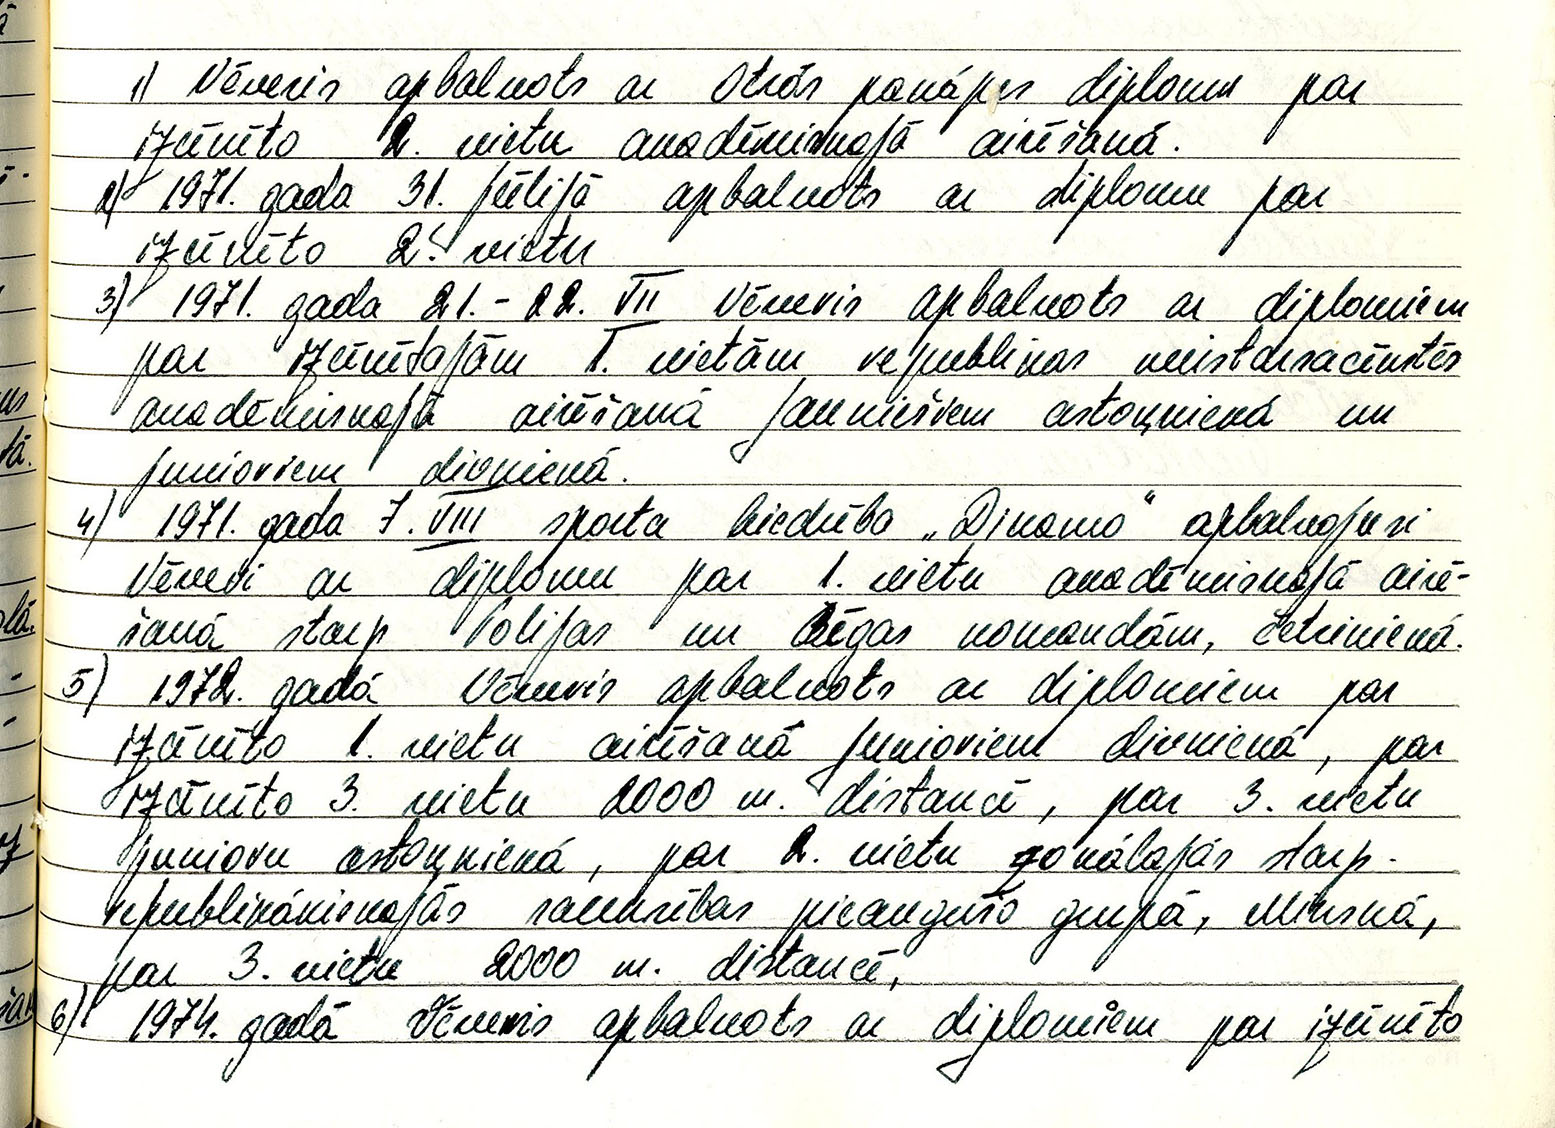 1) Vēveris apbalvots ar Otrās pakāpes diplomu par
izcīnīto 2. vietu akadēmiskajā airēšanā.
2) 1971. gada 31. jūlijā apbalvots ar diplomu par
izcīnīto 2. vietu
3) 1971. gada 21.-22. VII Vēveris apbalvots ar diplomiem
par izcīnītajām 1. vietām republikas meistarsacīkstēs
akadēmiskajā airēšanā jauniešiem astoņniekā un
junioriem divniekā.
4) 1971. gada 7. VIII sporta biedrība „Dinamo“ apbalvojusi
Vēveri ar diplomu par 1. vietu akadēmiskajā airē-
šanā starp Polijas un Rīgas komandām, četriniekā.
5) 1972. gadā Vēveris apbalvots ar diplomiem par
izcīnīto 1. vietu airēšanā junioriem divniekā, par
izcīnīto 3. vietu 2000 m. distancē, par 3. vietu
junioru astoņniekā, par 2. vietu zonālajās starp-
republikānieskajās sacensībās pieaugušo grupā, Minskā,
par 3. vietu 2000 m. distancē,
6) 1974. gadā Vēveris apbalvots ar diplomiem par izcīnīto